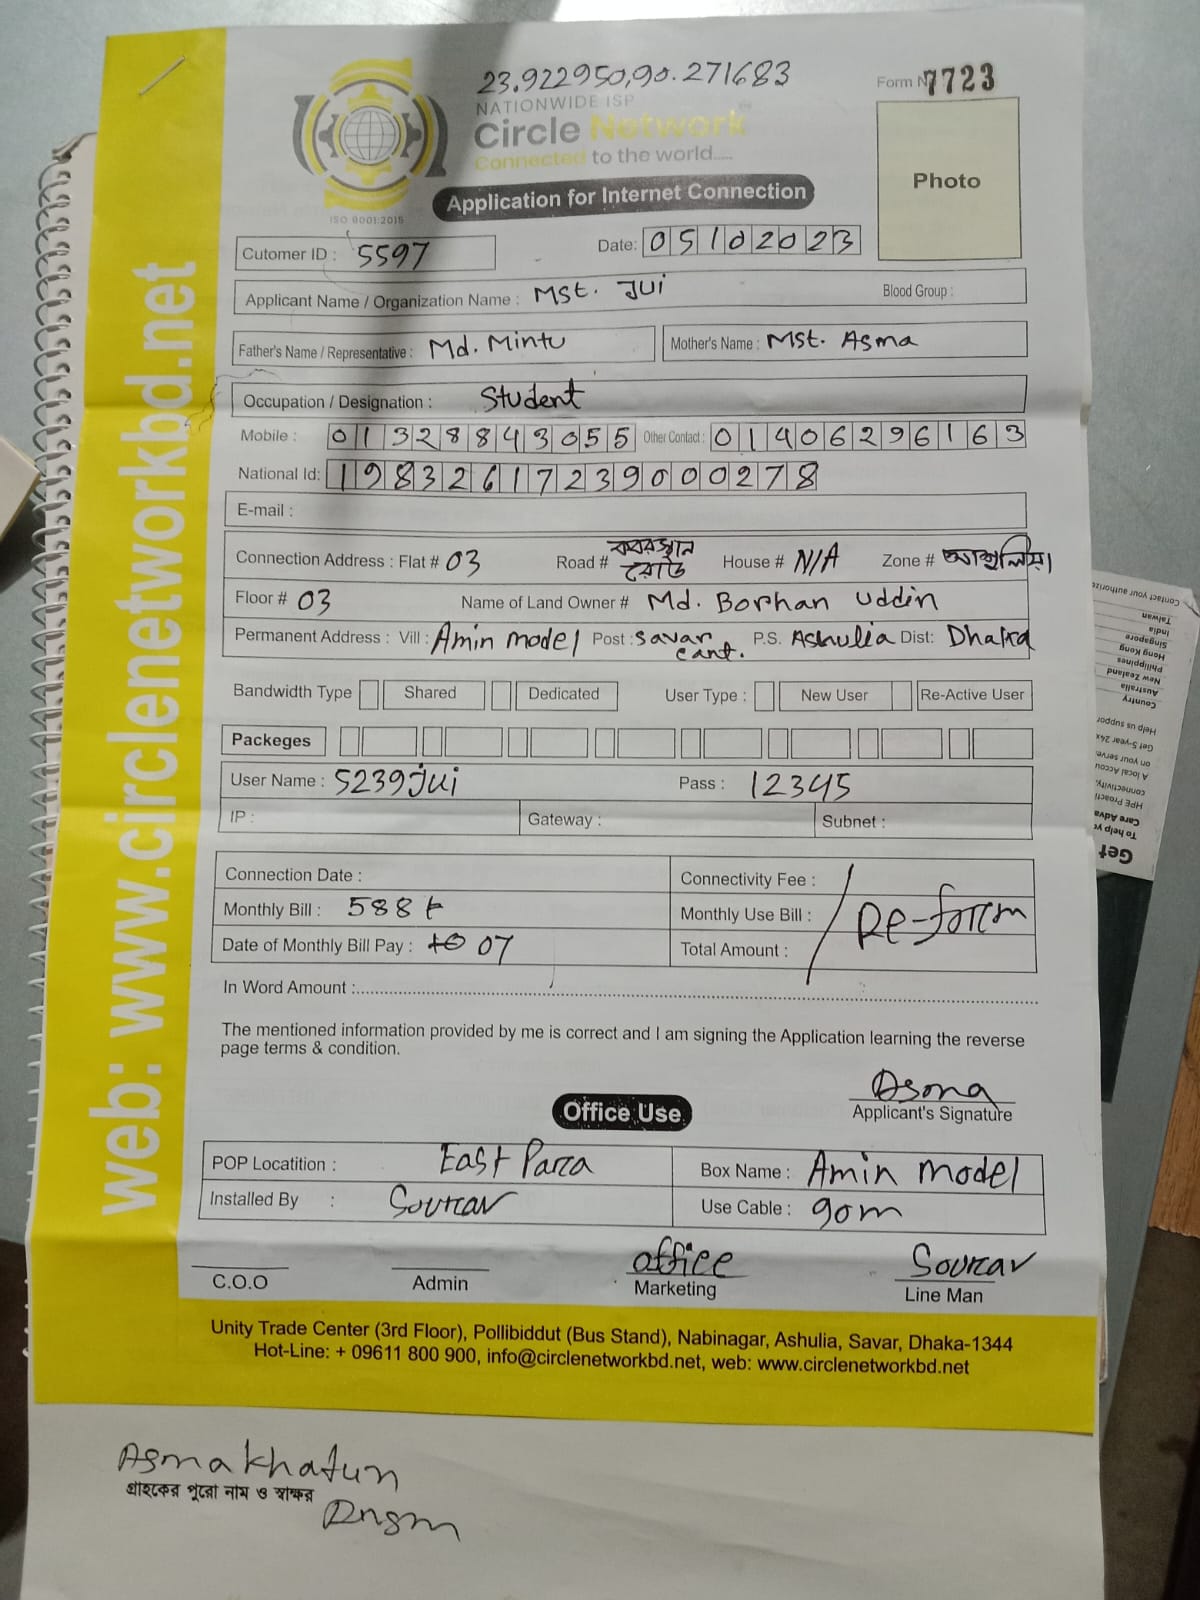 23.922950,90.271683
Form N 7723
NATIONWIDE ISP
Circle Network
Connected to the world.....
ISO 9001:2015
Application for Internet Connection
Photo
Cutomer ID : 5597
Date: 05102023
Applicant Name / Organization Name : Mst. Jui
Blood Group :
Father's Name / Representative : Md. Mintu
Mother's Name : Mst. Asma
Occupation / Designation : Student
Mobile : 01328843055 Other Contact : 01406296163
National Id: 19832617239000278
E-mail :
Connection Address : Flat # 03 Road # কবরস্থান রোড House # N/A Zone # আশুলিয়া
Floor # 03 Name of Land Owner # Md. Borhan Uddin
Permanent Address : Vill : Amin model Post : Savar cant. P.S. Ashulia Dist: Dhaka
Bandwidth Type Shared Dedicated User Type : New User Re-Active User
Packeges
User Name : 5239jui Pass : 12345
IP : Gateway : Subnet :
Connection Date : Connectivity Fee :
Monthly Bill : 588 t Monthly Use Bill : Re-form
Date of Monthly Bill Pay : 07 Total Amount :
In Word Amount :
The mentioned information provided by me is correct and I am signing the Application learning the reverse
page terms & condition.
Asma
Applicant's Signature
Office Use
POP Locatition : East Para Box Name : Amin model
Installed By : Sourav Use Cable : 90m
office Sourav
C.O.O Admin Marketing Line Man
Unity Trade Center (3rd Floor), Pollibiddut (Bus Stand), Nabinagar, Ashulia, Savar, Dhaka-1344
Hot-Line: + 09611 800 900, info@circlenetworkbd.net, web: www.circlenetworkbd.net
web: www.circlenetworkbd.net
Asma khatun
গ্রাহকের পুরো নাম ও স্বাক্ষর
Contact your authorize
Taiwan
India
Singapore
Hong Kong
Philippines
New Zealand
Australia
Country
Help us suppor
Get 5-year 24x
on your serve
A local Accou
connectivity,
HPE Proacti
Care Adva
To help yo
Get